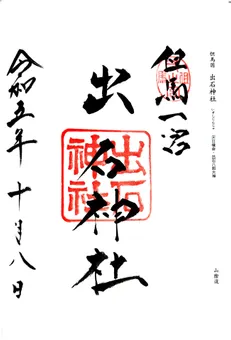 但馬国 出石神社
山陰道
但馬一宮
出石神社
出石
神社
令和五年十月八日